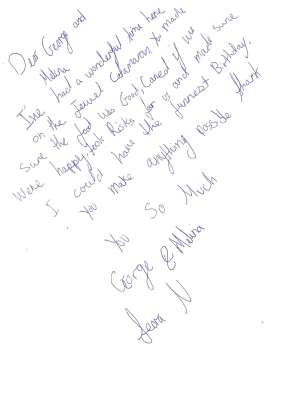 Dear George and
Melina
I've had a wonderful time here
on the Jewel Catamaran. You made
Sure the food was Good, Cared if we
Were happy, took Risks for us and made sure
I could have the funnest Birthday.
You make anything possible thank
You So Much
George & Melina